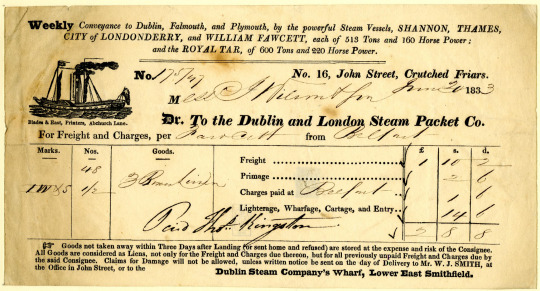 Weekly Conveyance to Dublin, Falmouth, and Plymouth, by the powerful Steam Vessels, SHANNON, THAMES,
CITY of LONDONDERRY, and WILLIAM FAWCETT, each of 513 Tons and 160 Horse Power;
and the ROYAL TAR, of 600 Tons and 220 Horse Power.
No. 175/47 No. 16, John Street, Crutched Friars.
Blades & East, Printers, Abchurch Lane.
Mess J Wilson & Son June 20 1833
Dr. To the Dublin and London Steam Packet Co.
For Freight and Charges, per Fawcett from Belfast
Marks. Nos. Goods. £ s. d.
48 Freight 1 10 2
1/2 3 Linen Primage 2 6
Charges paid at Belfast 1 6
Lighterage, Wharfage, Cartage, and Entry 14 6
Paid Thos. Kingston 2 8 8
☞ Goods not taken away within Three Days after Landing (or sent home and refused) are stored at the expense and risk of the Consignee.
All Goods are considered as Liens, not only for the Freight and Charges due thereon, but for all previously unpaid Freight and Charges due by
the said Consignee. Claims for Damage will not be allowed, unless written notice be sent on the day of Delivery to Mr. W. J. SMITH, at
the Office in John Street, or to the Dublin Steam Company's Wharf, Lower East Smithfield.